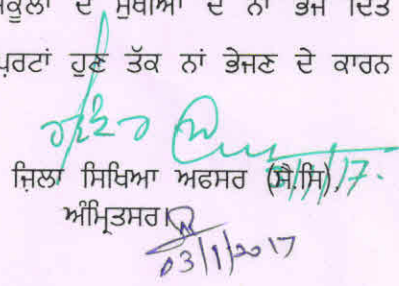 ਸਕੂਲਾਂ ਦੇ ਮੁਖੀਆਂ ਦੇ ਨਾਂ ਭੇਜ ਦਿੱਤੇ
ਪ੍ਰਰਟਾਂ ਹੁਣ ਤੱਕ ਨਾਂ ਭੇਜਣ ਦੇ ਕਾਰਨ
ਜ਼ਿਲਾ ਸਿਖਿਆ ਅਫਸਰ (ਸੈ.ਸਿ)
ਅੰਮ੍ਰਿਤਸਰ।
03/1/2017